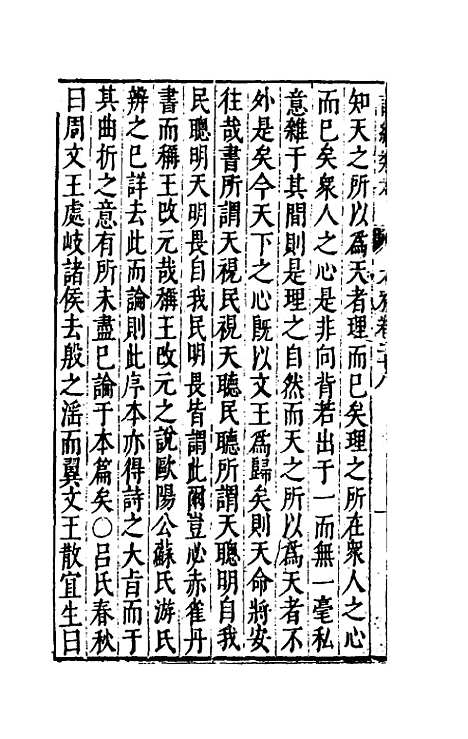 知天之所以爲天者理而已矣理之所在衆人之心
而已矣衆人之心是非向背若出于一而無一毫私
意雜于其間則是理之自然而天之所以爲天者不
外是矣今天下之心既以文王爲歸矣則天命將安
往哉書所謂天視民視天聽民聽所謂天聰明自我
民聰明天明畏自我民明畏皆謂此爾豈必赤雀丹
書而稱王改元哉稱王改元之說歐陽公蘇氏游氏
辨之已詳去此而論則此序本亦得詩之大旨而于
其曲折之意有所未盡已論于本篇矣○呂氏春秋
曰周文王處岐諸侯去殷之淫而翼文王散宜生曰